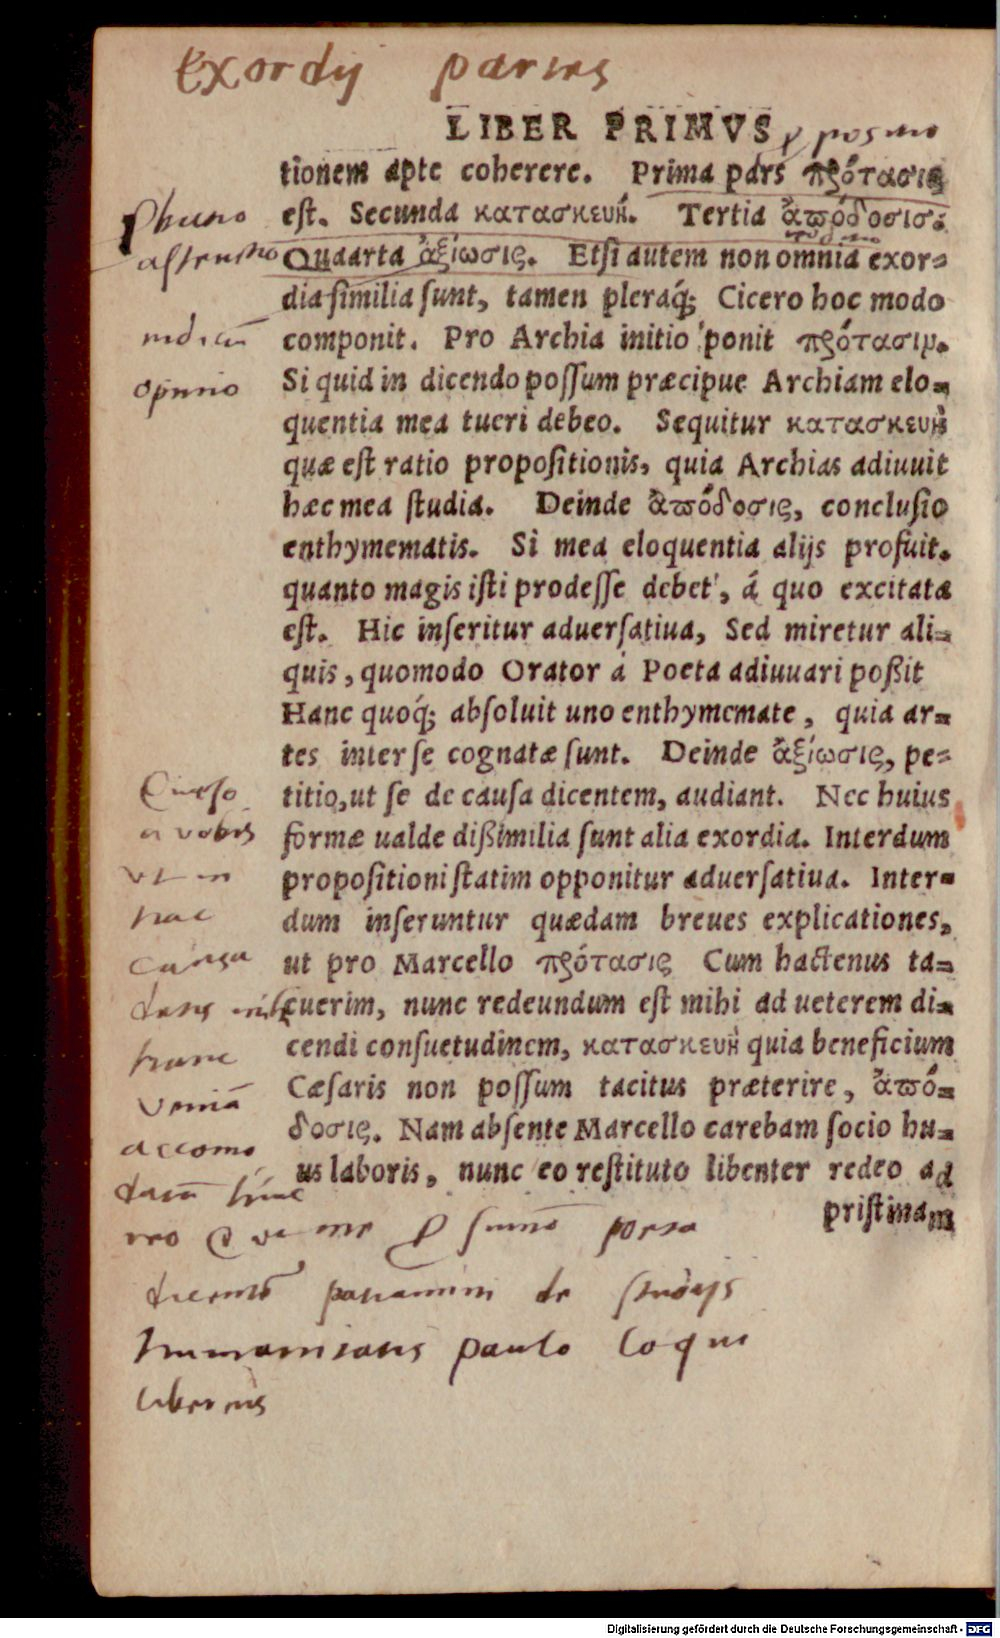 exordij partes
LIBER PRIMVS
propositio
tionem apte coherere. Prima pars πρότασις
est. Secunda κατασκευή. Tertia ἀπόδοσις.
Quaarta ἀξίωσις. Etsi autem non omnia exor=
dia similia sunt, tamen pleraq́; Cicero hoc modo
componit. Pro Archia initio ponit πρότασιμ.
Si quid in dicendo possum præcipue Archiam elo=
quentia mea tueri debeo. Sequitur κατασκευὴ
quæ est ratio propositionis, quia Archias adiuuit
hæc mea studia. Deinde ἀπόδοσις, conclusio
enthymematis. Si mea eloquentia alijs profuit.
quanto magis isti prodesse debet, á quo excitata
est. Hic inseritur aduersatiua, Sed miretur ali=
quis, quomodo Orator á Poeta adiuuari poßit
Hanc quoq́; absoluit uno enthymemate, quia ar=
tes inter se cognatæ sunt. Deinde ἀξίωσις, pe=
titio, ut se de causa dicentem, audiant. Nec huius
formæ ualde dißimilia sunt alia exordia. Interdum
propositioni statim opponitur aduersatiua. Inter=
dum inseruntur quædam breues explicationes,
ut pro Marcello πρότασις Cum hactenus ta=
cuerim, nunc redeundum est mihi ad ueterem di=
cendi consuetudinem, κατασκευὴ quia beneficium
Cæsaris non possum tacitus præterire, ἀπό=
δοσις. Nam absente Marcello carebam socio hu=
us laboris, nunc eo restituto libenter redeo ad
pristinam
Quæso
a vobis
vt in
hac
causa
detis mihi
hanc
veniā
accomo
datā huic
reo & vt me
patiamini de studijs
humanitatis paulo loqui
liberius